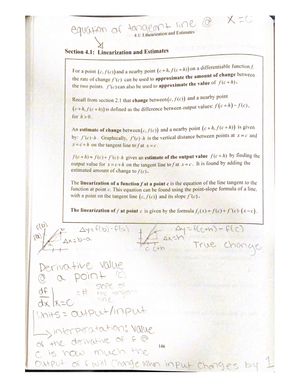 equation of tangent line @ x=c
4.1: Linearization and Estimates
Section 4.1: Linearization and Estimates
For a point (c, f(c)) and a nearby point (c+h, f(c+h)) on a differentiable function f,
the rate of change f'(c) can be used to approximate the amount of change between
the two points. f'(c) can also be used to approximate the value of f(c+h).
Recall from section 2.1 that change between (c, f(c)) and a nearby point
(c+h, f(c+h)) is defined as the difference between output values: f(c+h) − f(c),
for h>0.
An estimate of change between (c, f(c)) and a nearby point (c+h, f(c+h)) is given
by: f'(c)·h. Graphically, f'(c)·h is the vertical distance between points at x=c and
x=c+h on the tangent line to f at x=c.
f(c+h) ≈ f(c)+f'(c)·h gives an estimate of the output value f(c+h) by finding the
output value for x=c+h on the tangent line to f at x=c. It is found by adding the
estimated amount of change to f(c).
The linearization of a function f at a point c is the equation of the line tangent to the
function at point c. This equation can be found using the point-slope formula of a line,
with a point on the tangent line (c, f(c)) and its slope f'(c).
The linearization of f at point c is given by the formula f_L(x) = f(c)+f'(c)·(x−c).
f(b)
f(a)
Δy=f(b)-f(a)
Δx=b-a
Δy=f(c+h)-f(c)
Δx=h
c c+h
True change
Derivative value
@ a point
df/dx|x=c =# slope of the tangent line
units = output/input
interpretation: value
of the derivative of f @
c is how much the
output of f will change when input changes by 1
146